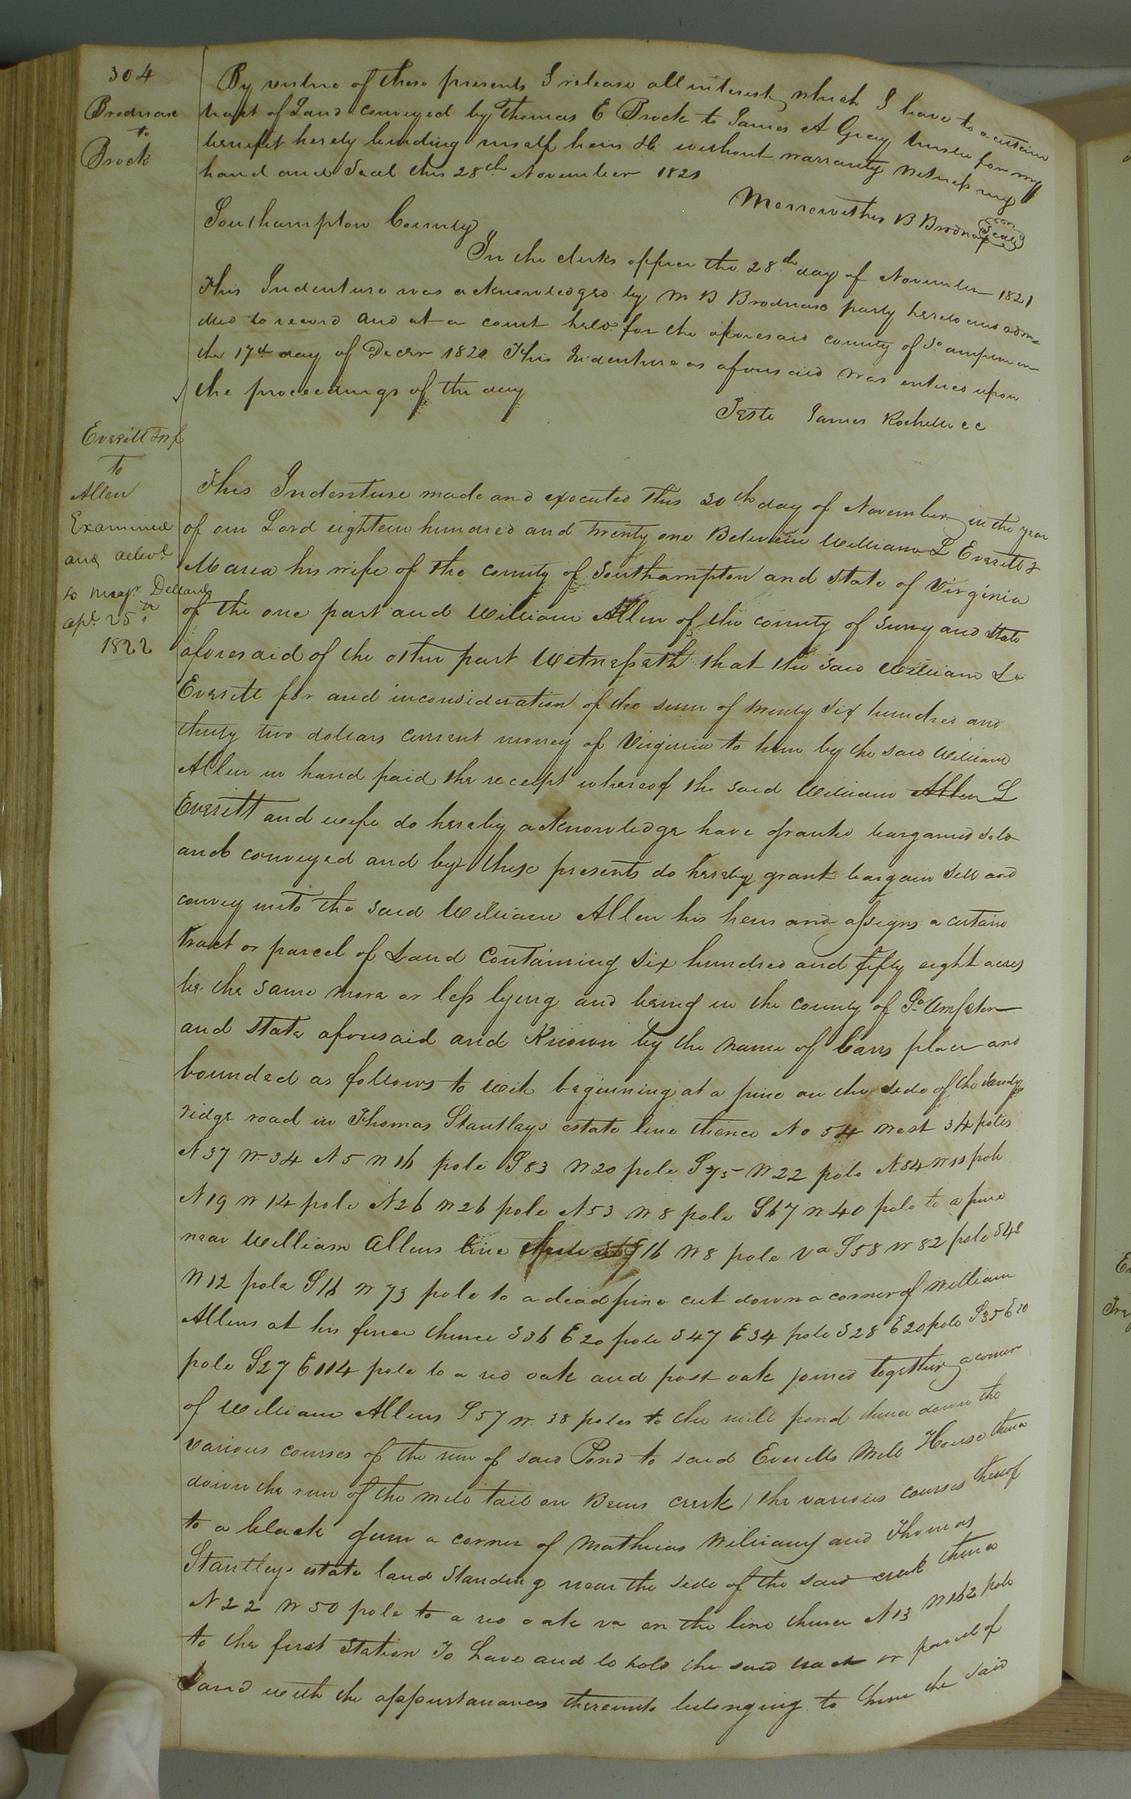 304
Brodnax
to
Brock
By virtue of these presents I release all interest which I have to a certain
tract of Land conveyed by Thomas E Brock to James A Gray trustee for my
benefit hereby binding myself heirs &c without warranty witness my
hand and Seal this 28th November 1821
Merrewether B Brodnax Seal
Southampton County
In the clerks office the 28th day of November 1821
This Indenture was acknowledged by M B Brodnax party hereto and adm-
itted to record and at a court held for the aforesaid county of So ampton on
the 17th day of Decem 1821 This Indenture as aforesaid was entered upon
the proceedings of the day
Teste James Rochelle cc
Everitt & wf
to
Allen
Examined
and delivd
to
apl 25th
1822
This Indenture made and executed this 20th day of November in the year
of our Lord eighteen hundred and twenty one Between William L Everitt &
Maria his wife of the county of Southampton and State of Virginia
of the one part and William Allen of the county of Surry and State
aforesaid of the other part Witnesseth that the said William L
Everitt for and inconsideration of the sum of twenty six hundred and
thirty two dollars current money of Virginia to him by the said William
Allen in hand paid the receipt whereof the said William Allen L
Everitt and wife do hereby acknowledge have granted bargained sold
and conveyed and by these presents do hereby grant bargain sell and
convey unto the said William Allen his heirs and assigns a certain
tract or parcel of Land Containing six hundred and fifty eight acres
be the same more or less lying and being in the county of So ampton
and State aforesaid and Known by the name of Carrs place and
bounded as follows to wit beginning at a pine on the side of the
ridge road in Thomas Stantleys estate line thence No 54 west 34 poles
N 37 W 34 N 5 W 16 pole S 83 W 20 pole S 75 W 22 pole N 84 W 11 pole
N 19 W 14 pole N 26 W 26 pole N 53 W 8 pole S 67 W 40 pole to a pine
near William Allens line S 16 W 8 pole va S 58 W 82 pole S 48
W 12 pole S 16 W 73 pole to a dead pine cut down a corner of William
Allens at his fence thence S 36 E 20 pole S 47 E 34 pole S 28 E 20 pole S 35 E 20
pole S 27 E 114 pole to a red oak and post oak joined together a corner
of William Allens S 57 W 38 poles to the mill pond thence down the
various courses of the run of said Pond to said Everitts Mill House thence
down the run of the mill tail or Bens creek / the various courses thereof
to a black gum a corner of Mathews Williams and Thomas
Stantleys estate land Standing near the side of the said creek thence
N 22 W 50 pole to a red oak va on the line thence N 13 W 162 pole
to the first Station To have and to hold the said tract or parcel of
Land with the appurtanances thereunto belonging to him the said